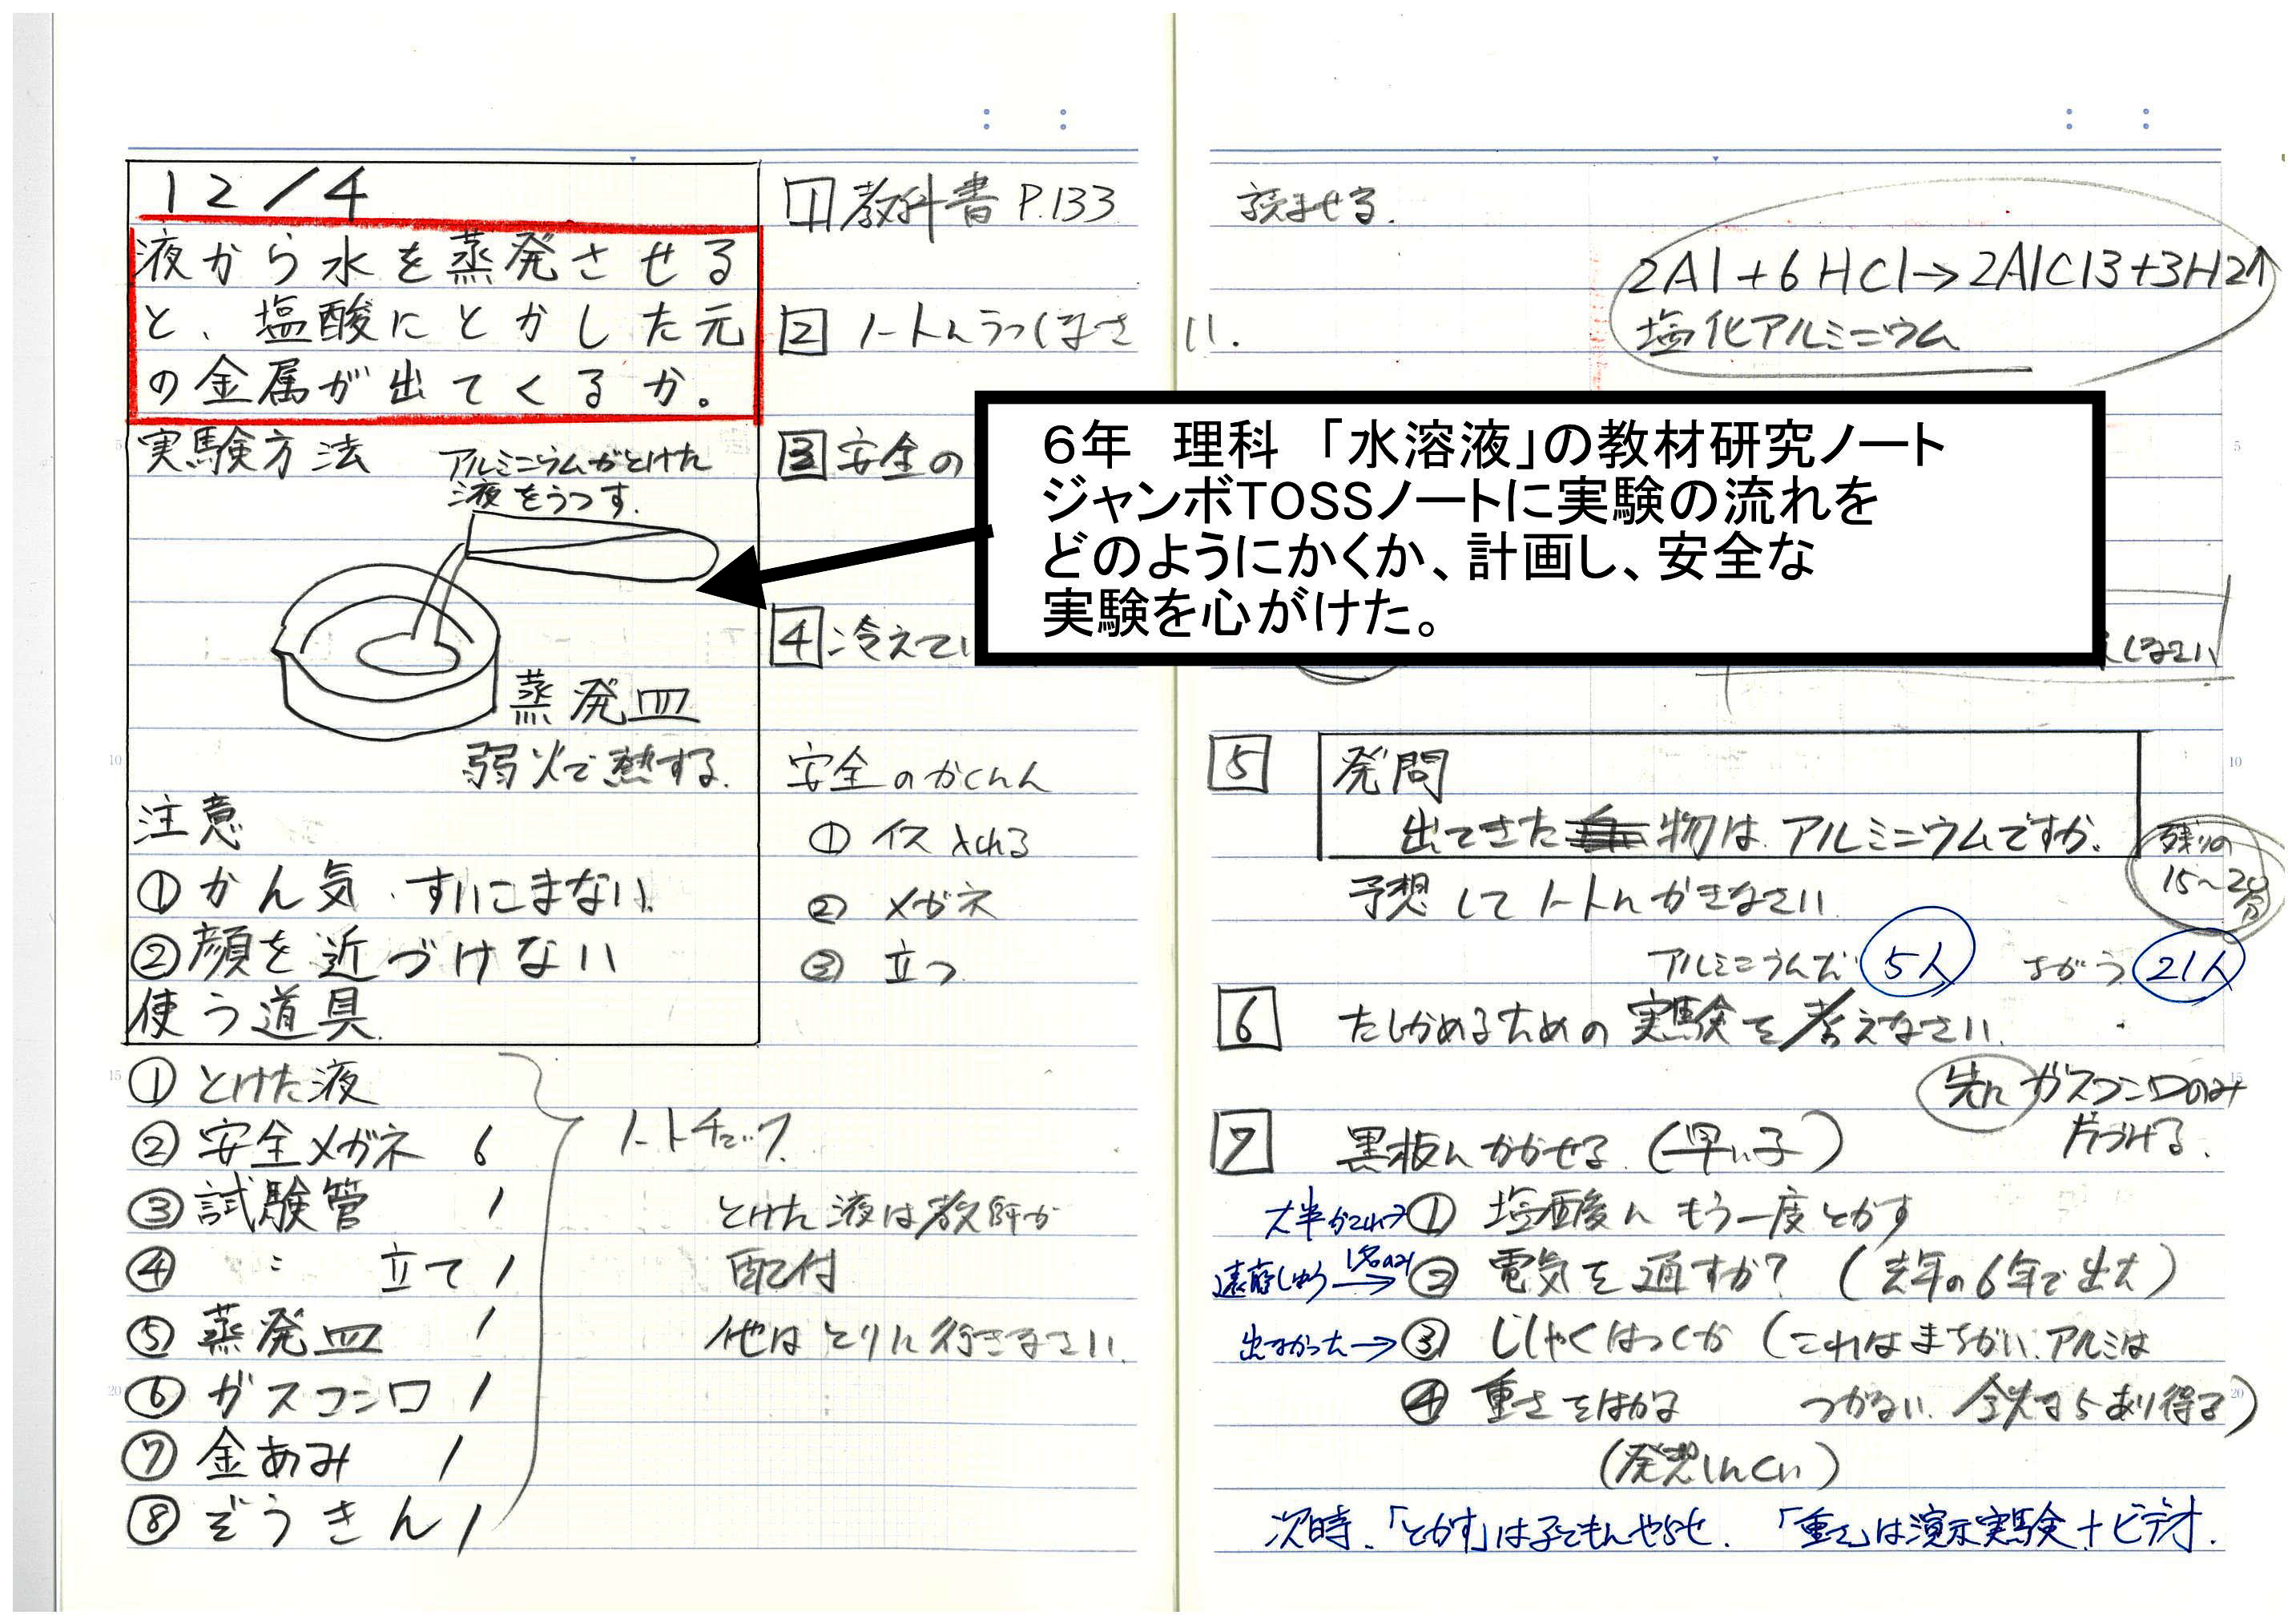 12/4
液から水を蒸発させる
と、塩酸にとかした元
の金属が出てくるか。
実験方法
アルミニウムがとけた
液をうつす.
蒸発皿
弱火で熱する.
注意
①かん気 すいこまない
②顔を近づけない
使う道具
①とけた液
②安全メガネ 6
③試験管 1
④ 〃 立て 1
⑤蒸発皿 1
⑥ガスコンロ 1
⑦金あみ 1
⑧ぞうきん 1
ノートチェック
とけた液は教師が
配付
他はとりに行きなさい.
1 教科書 P.133 読ませる.
2 ノートにうつしなさい.
3 安全の
4 冷えてい
しなさい
安全のかくにん
① イス 入れる
② メガネ
③ 立つ
2Al+6HCl→2AlCl3+3H2↑
塩化アルミニウム
6年 理科 「水溶液」の教材研究ノート
ジャンボTOSSノートに実験の流れを
どのようにかくか、計画し、安全な
実験を心がけた。
5 発問
出てきた物は アルミニウムですか.
残りの
15~20分
予想してノートにかきなさい
アルミニウムだ 5人 ちがう 21人
6 たしかめるための実験を考えなさい.
先に ガスコンロのみ
片づける.
7 黒板にかかせる.(早い子)
大半がこれ→① 塩酸にもう一度とかす
1名のみ→② 電気を通すか?(去年の6年で出た)
出なかった→③ じしゃくはつくか(これはまちがい.アルミは
つかない. 鉄ならあり得る)
④ 重さをはかる
(発想しにくい)
次時.「とかす」は子どもにやらせ.「重さ」は演示実験+ビデオ.